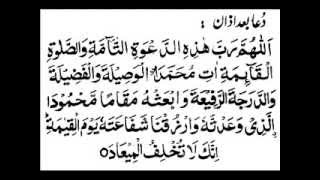 دُعا بعد اذان :
اَللّٰهُمَّ رَبَّ هٰذِهِ الدَّعْوَةِ التَّآمَّةِ وَالصَّلٰوةِ
الْقَآئِمَةِ اٰتِ مُحَمَّدَاِ۟ الْوَسِيْلَةَ وَالْفَضِيْلَةَ
وَالدَّرَجَةَ الرَّفِيْعَةَ وَابْعَثْهُ مَقَامًا مَّحْمُوْدَا
اِ۟لَّذِىْ وَعَدْتَّهٗ وَارْزُقْنَا شَفَاعَتَهٗ يَوْمَ الْقِيٰمَةِ
اِنَّكَ لَا تُخْلِفُ الْمِيْعَادَ ه